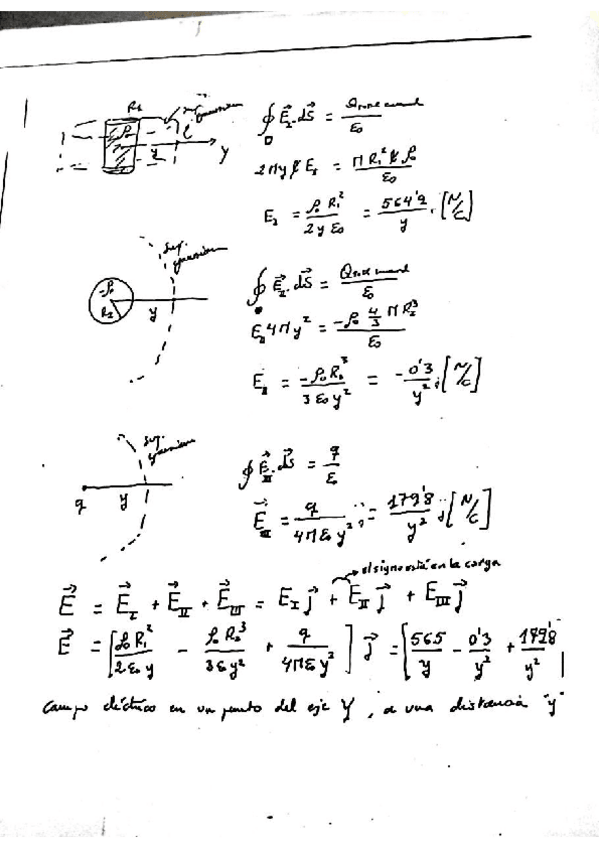 R₁
sup. gaussiana
ρ₀
y
l
Y
∮ E⃗_I · dS⃗ = Q neta encerrada / ε₀
2πy ℓ E_I = π R₁² ℓ ρ₀ / ε₀
E_I = ρ₀ R₁² / 2 y ε₀ = 564'9 / y · [N/C]
sup. gaussiana
-ρ₀
R₂
y
∮ E⃗_II · dS⃗ = Q neta encerrada / ε₀
E_II 4π y² = -ρ₀ 4/3 π R₂³ / ε₀
E_II = -ρ₀ R₂³ / 3 ε₀ y² = -0'3 / y² [N/C]
sup. gaussiana
q
y
∮ E⃗_III · dS⃗ = q / ε₀
E⃗_III = q / 4π ε₀ y² j⃗ = 179'8 / y² j⃗ [N/C]
el signo está en la carga
E⃗ = E⃗_I + E⃗_II + E⃗_III = E_I j⃗ + E_II j⃗ + E_III j⃗
E⃗ = [ρ₀ R₁² / 2 ε₀ y - ρ₀ R₂³ / 3 ε y² + q / 4π ε y²] j⃗ = [565 / y - 0'3 / y² + 179'8 / y²]
Campo eléctrico en un punto del eje Y, a una distancia "y"